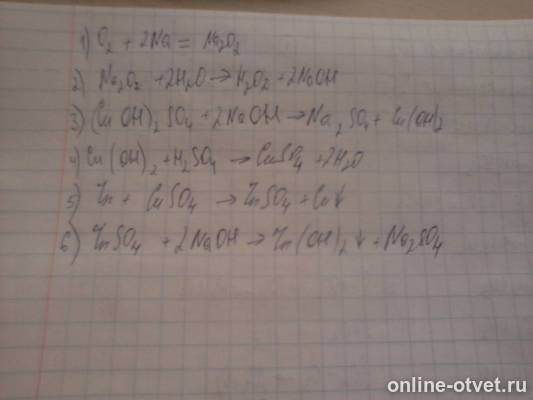 1) O₂ + 2Na = Na₂O₂
2) Na₂O₂ + 2H₂O → H₂O₂ + 2NaOH
3) (CuOH)₂SO₄ + 2NaOH → Na₂SO₄ + Cu(OH)₂
4) Cu(OH)₂ + H₂SO₄ → CuSO₄ + 2H₂O
5) Zn + CuSO₄ → ZnSO₄ + Cu↓
6) ZnSO₄ + 2NaOH → Zn(OH)₂↓ + Na₂SO₄
online-otvet.ru